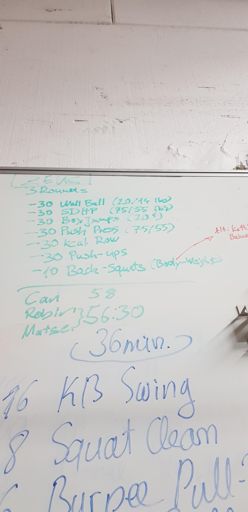 [ZEUS]
3 Rounds
-30 Wall Ball (20/14 lbs)
-30 SDHP (75/55 lbs)
-30 Box Jumps (20")
-30 Push Press (75/55)
-30 kcal Row
-30 Push-ups
-10 Back-Squats (Body-Weight)
Alt: Kett
Carl 58
Robin
Matser } 56:30
(36min.)
16 KB Swing
8 Squat Clean
6 Burpee Pull-